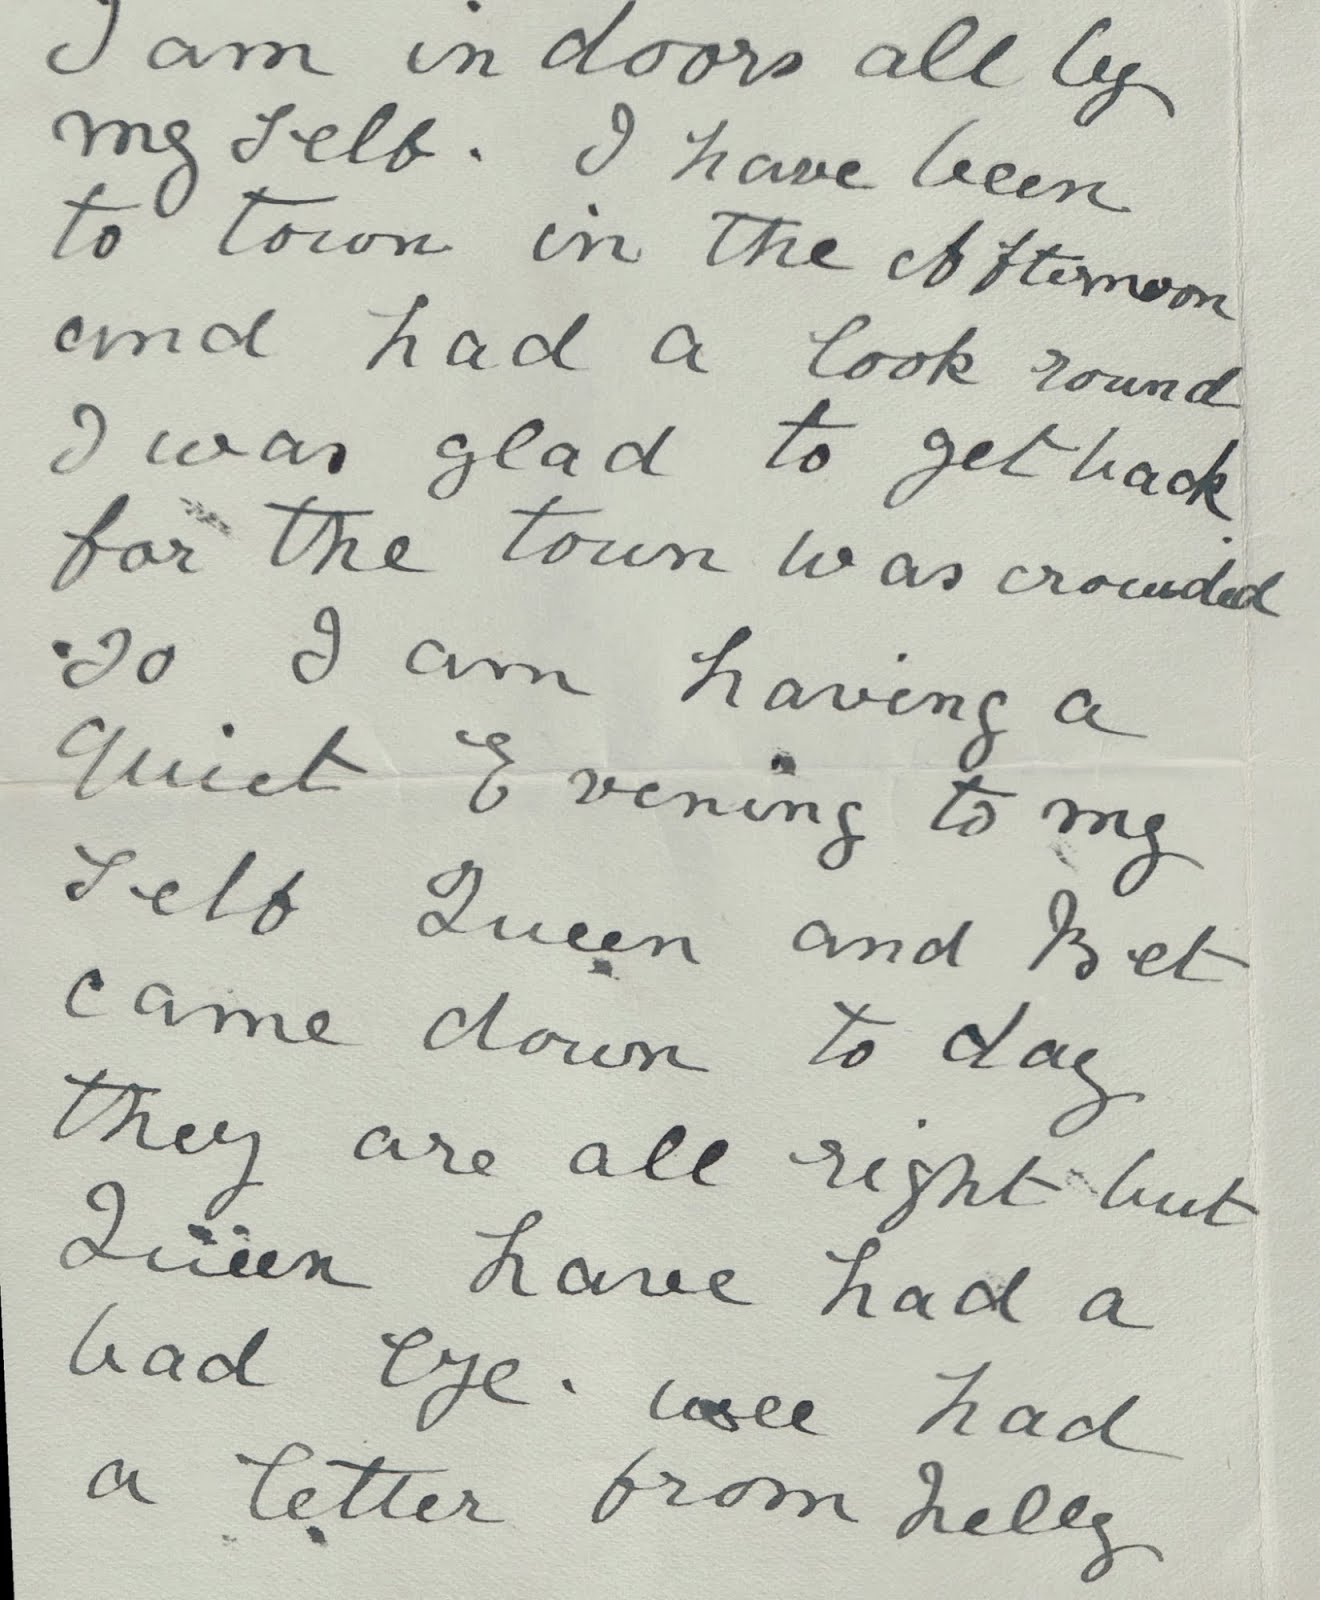 I am in doors all by
my self. I have been
to town in the Afternoon
and had a look round
I was glad to get back
for the town was crowded
So I am having a
quiet Evening to my
self Queen and Bet
came down to day
they are all right but
Queen have had a
bad Eye. had
a letter from Nelly